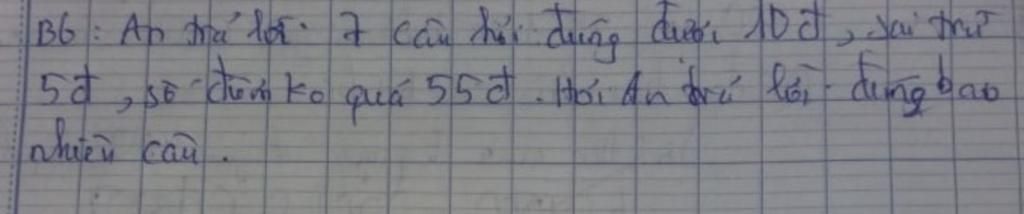 B6: An trả lời 7 câu hỏi đúng được 10đ, sai trừ
5đ, số điểm ko quá 55đ. Hỏi An trả lời đúng bao
nhiêu câu.